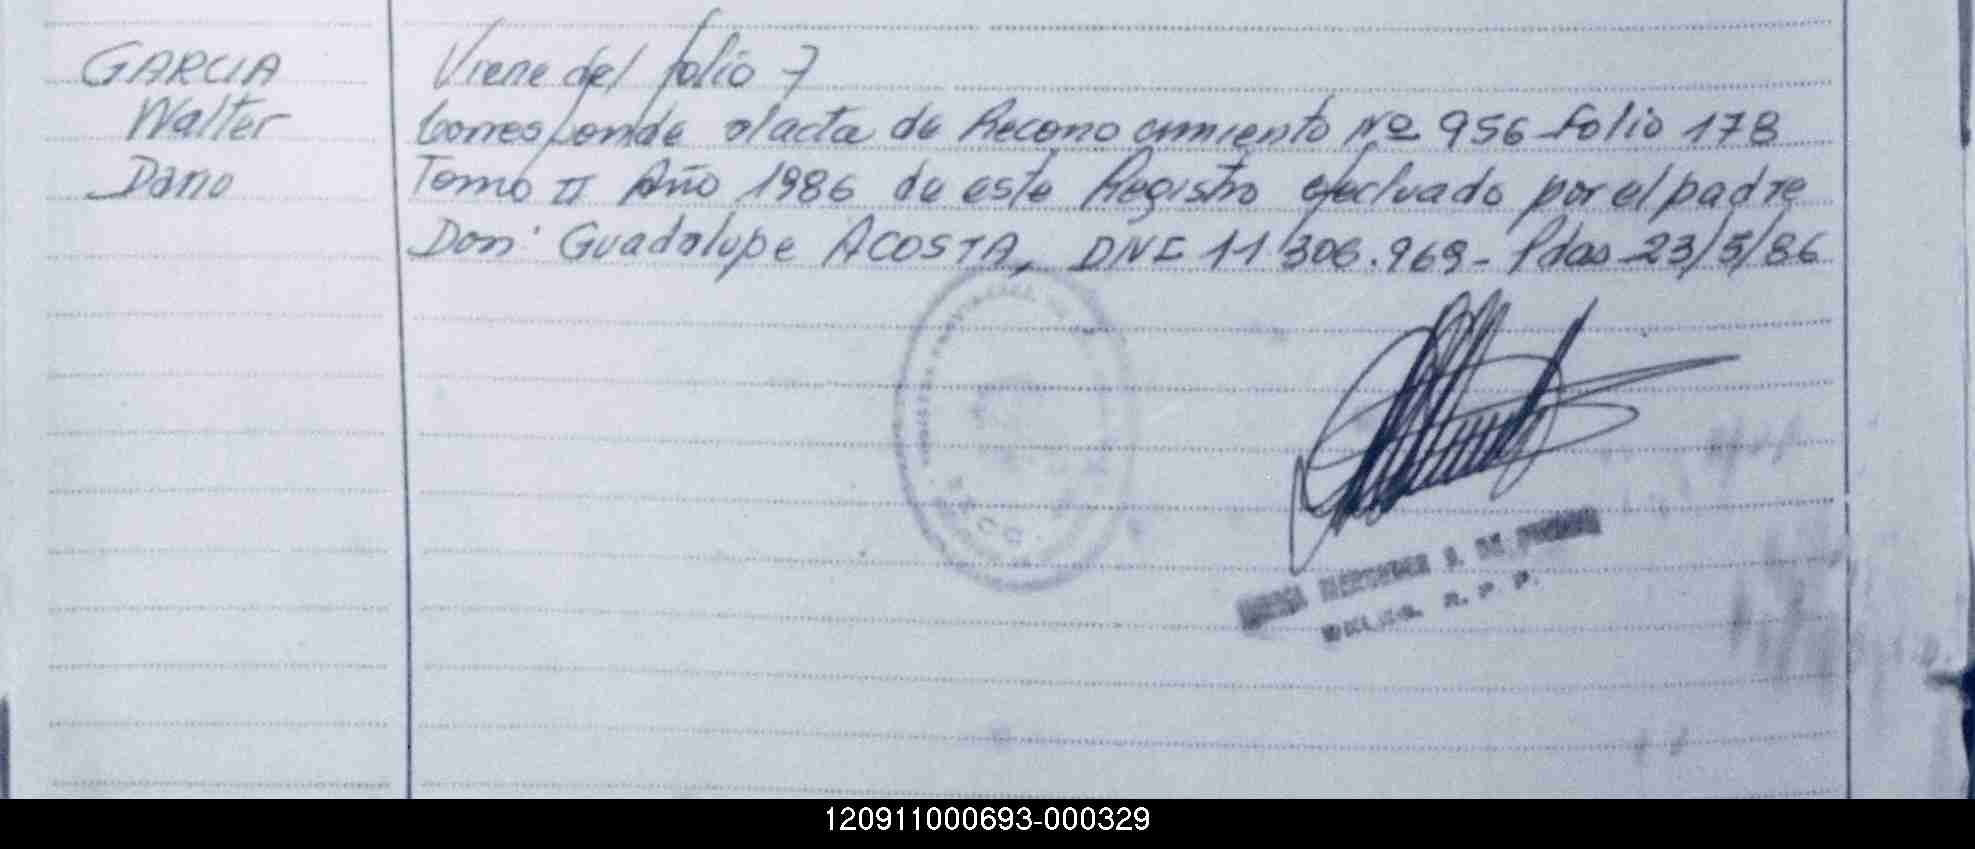 GARCIA
Walter
Dario
Viene del folio 7
Corresponde al acta de Reconocimiento Nº 956 folio 178
Tomo II Año 1986 de este Registro efectuado por el padre
Don Guadalupe ACOSTA, DNI 11.306.969 - Pdas 23/5/86
R. P. P.
120911000693-000329